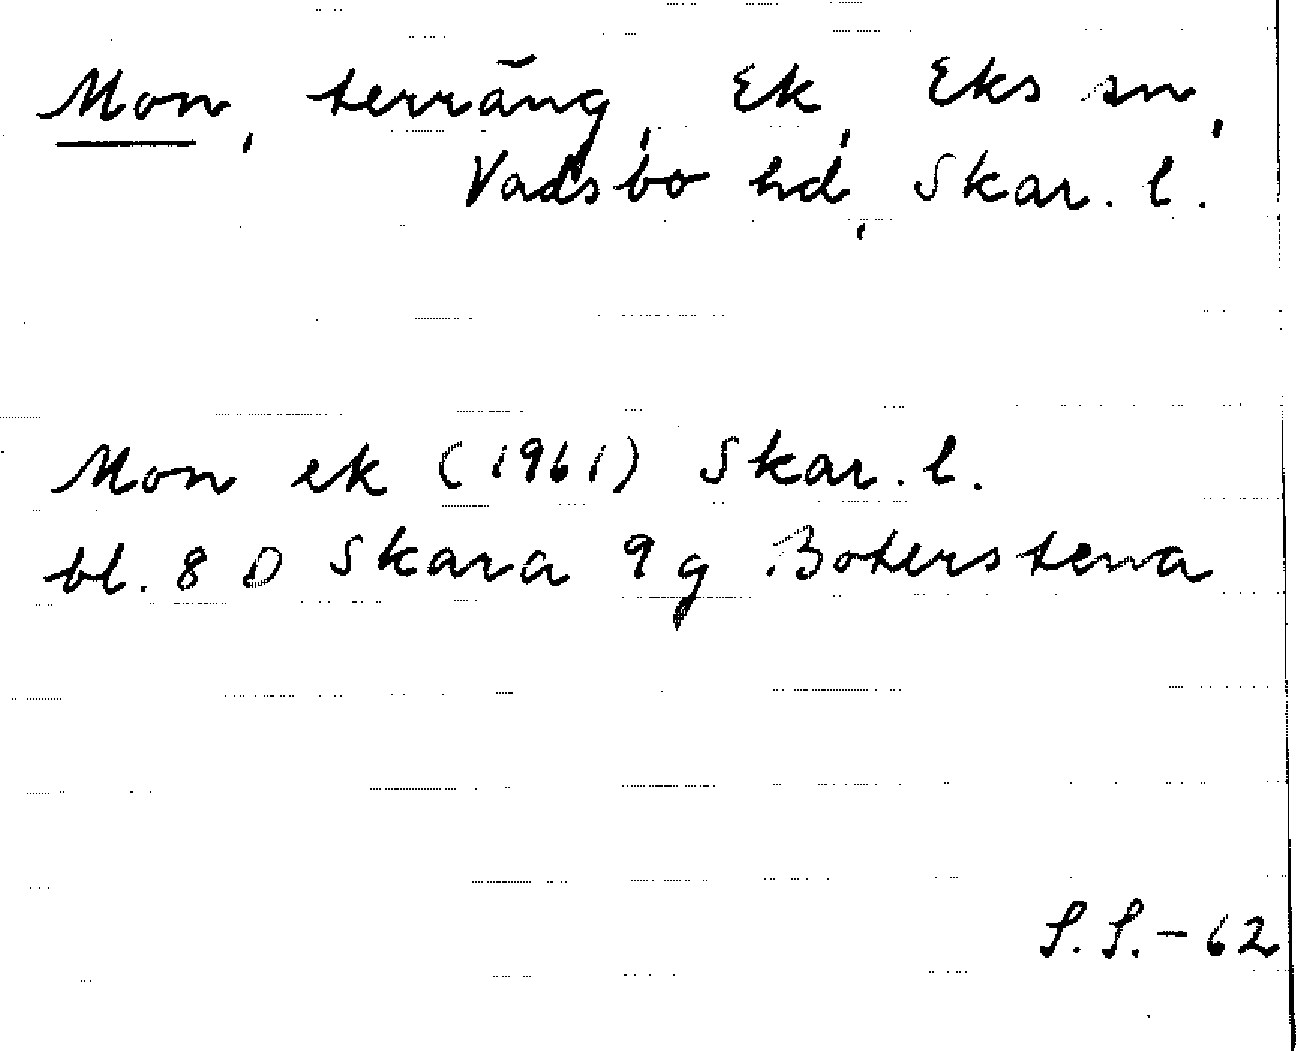 Mon, terräng, Ek, Eks sn,
Vadsbo hd, Skar. l.
Mon ek (1961) Skar. l.
bl. 8 D Skara 9 g Boterstena
S. S. - 62